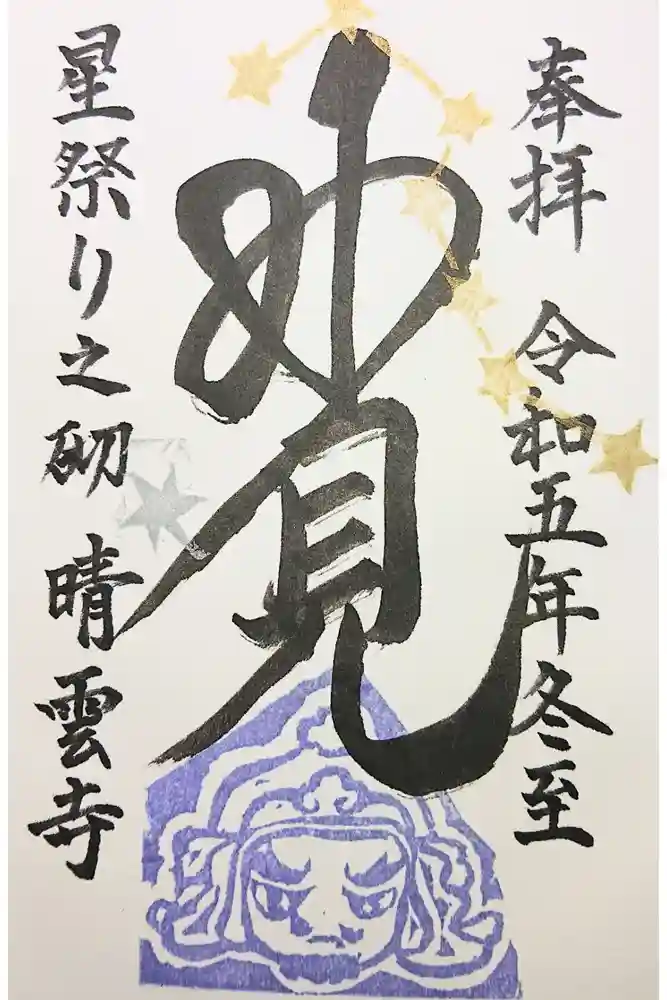 奉拝 令和五年冬至
妙見
星祭り之砌 晴雲寺